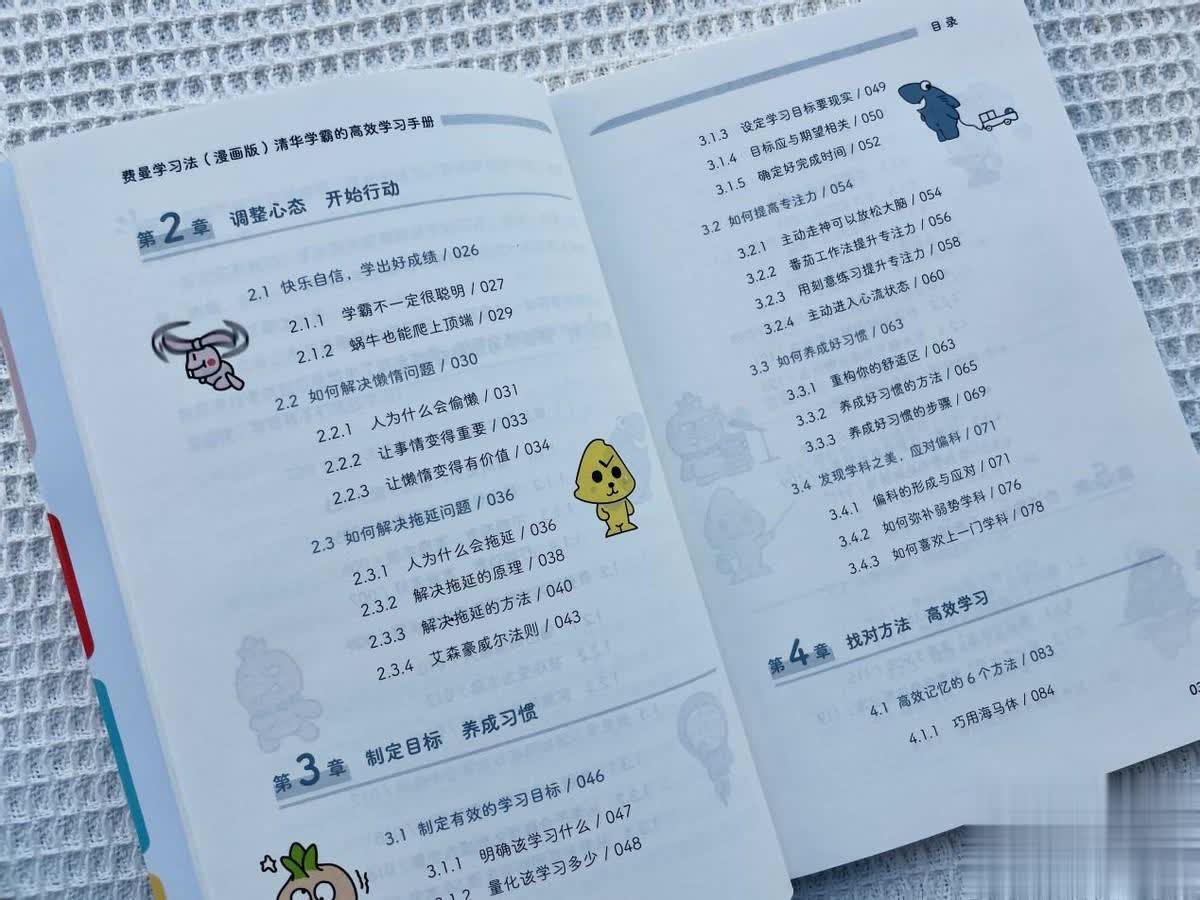 费曼学习法（漫画版）清华学霸的高效学习手册
第2章 调整心态 开始行动
2.1 快乐自信，学出好成绩 / 026
2.1.1 学霸不一定很聪明 / 027
2.1.2 蜗牛也能爬上顶端 / 029
2.2 如何解决懒惰问题 / 030
2.2.1 人为什么会偷懒 / 031
2.2.2 让事情变得重要 / 033
2.2.3 让懒惰变得有价值 / 034
2.3 如何解决拖延问题 / 036
2.3.1 人为什么会拖延 / 036
2.3.2 解决拖延的原理 / 038
2.3.3 解决拖延的方法 / 040
2.3.4 艾森豪威尔法则 / 043
第3章 制定目标 养成习惯
3.1 制定有效的学习目标 / 046
3.1.1 明确该学习什么 / 047
3.1.2 量化该学习多少 / 048
目录
3.1.3 设定学习目标要现实 / 049
3.1.4 目标应与期望相关 / 050
3.1.5 确定好完成时间 / 052
3.2 如何提高专注力 / 054
3.2.1 主动走神可以放松大脑 / 054
3.2.2 番茄工作法提升专注力 / 056
3.2.3 用刻意练习提升专注力 / 058
3.2.4 主动进入心流状态 / 060
3.3 如何养成好习惯 / 063
3.3.1 重构你的舒适区 / 063
3.3.2 养成好习惯的方法 / 065
3.3.3 养成好习惯的步骤 / 069
3.4 发现学科之美，应对偏科 / 071
3.4.1 偏科的形成与应对 / 071
3.4.2 如何弥补弱势学科 / 076
3.4.3 如何喜欢上一门学科 / 078
第4章 找对方法 高效学习
4.1 高效记忆的6个方法 / 083
4.1.1 巧用海马体 / 084